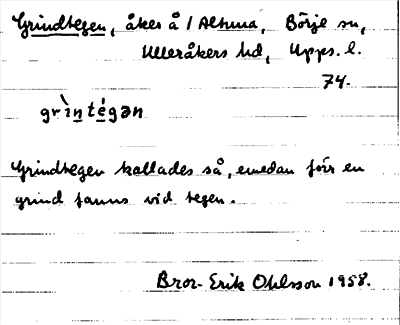 Grindtegen, åker å 1 Altuna, Börje sn,
Ulleråkers hd, Upps. l.
74.
grìntégən
Grindtegen kallades så, emedan förr en
grind fanns vid tegen.
Bror-Erik Ohlsson 1958.